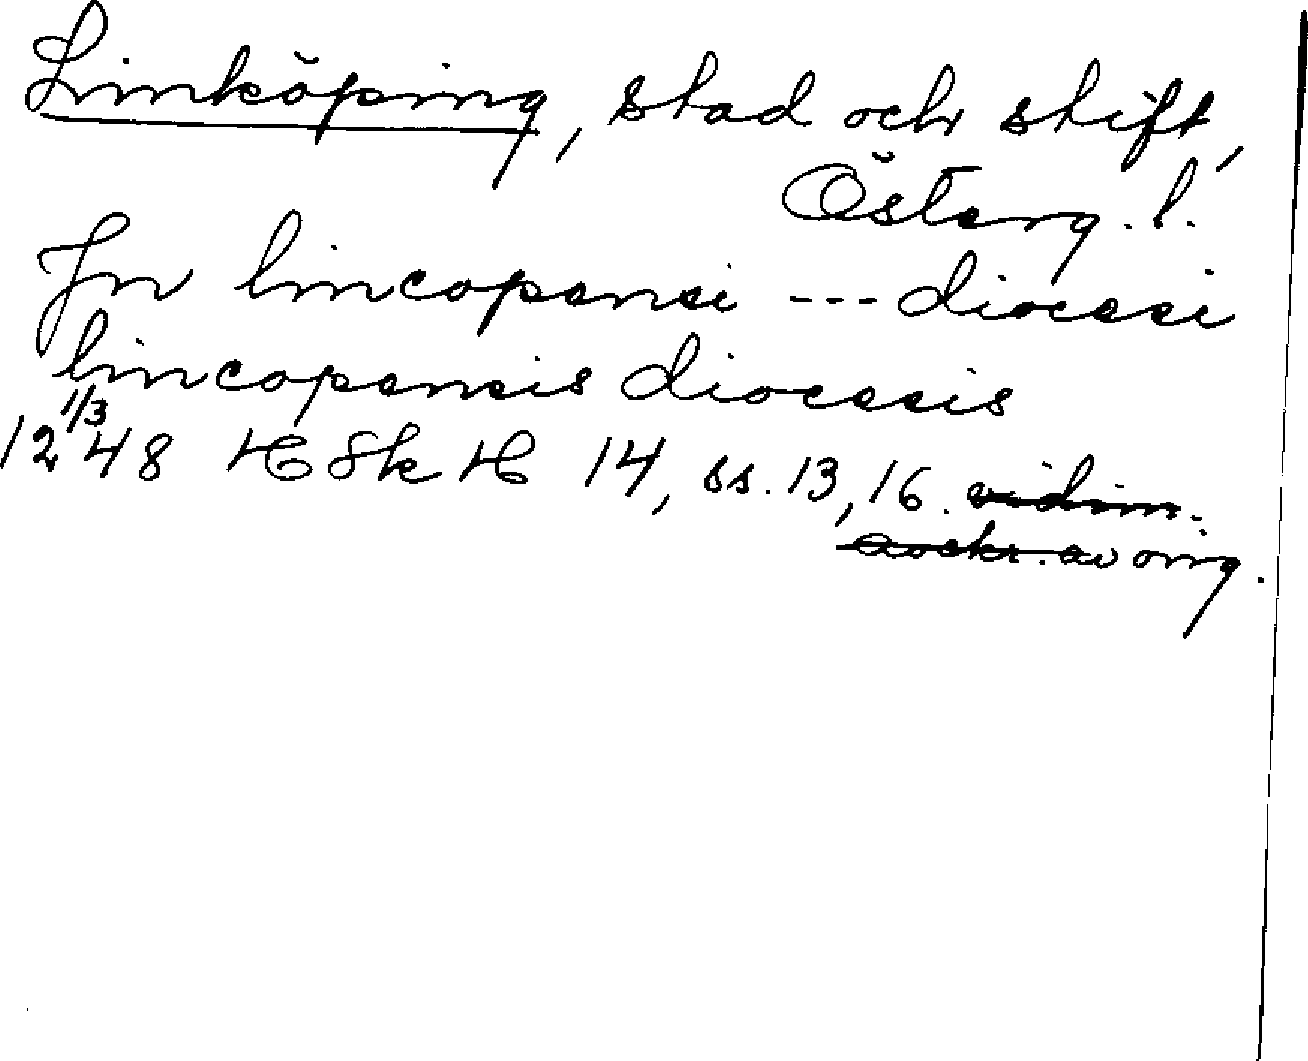 Linköping, stad och stift,
Österg. l.
In lincopensi --- diocesi
lincopensis diocesis
12 1/3 48 HSkH 14, ss. 13, 16. vidim.
avskr. av orig.